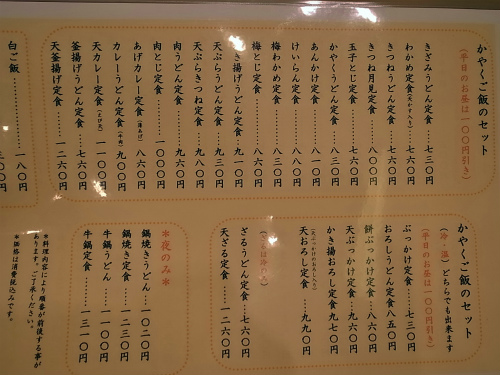 かやくご飯のセット
(平日のお昼は一〇〇円引き)
きざみうどん定食……七三〇円
わかめ定食(天かす入り)……七六〇円
きつねうどん定食……七六〇円
きつね月見定食……八〇〇円
玉子とじ定食……七六〇円
かやくうどん定食……八三〇円
あんかけ定食……八一〇円
けいらん定食……八一〇円
梅わかめ定食……八六〇円
梅とじ定食……八六〇円
き揚げうどん定食……八八〇円
天ぷらうどん定食……九三〇円
天ぷらきつね定食……九八〇円
肉うどん定食……九六〇円
肉とじ定食……一〇〇〇円
あげカレー定食……八六〇円
カレーうどん定食(牛肉)……九〇〇円
天カレー定食……一一〇〇円
釜揚げうどん定食……七六〇円
天釜揚げ定食……一二六〇円
白ご飯……一八〇円
〇円
かやくご飯のセット
(冷・温)どちらでも出来ます
(平日のお昼は一〇〇円引き)
ぶっかけ定食……七三〇円
おろしうどん定食八五〇円
餅ぶっかけ定食……八六〇円
天ぶっかけ定食……九六〇円
かき揚おろし定食九七〇円
天おろし定食……九九〇円
ざるうどん定食……七六〇円
天ざる定食……一二六〇円
*夜のみ*
鍋焼きうどん……一〇二〇円
鍋焼き定食……一二三〇円
牛鍋うどん……一一〇〇円
牛鍋定食……一三一〇円
*料理内容により順番が前後する事が
あります。ご了承ください。
*価格は消費税込みです。